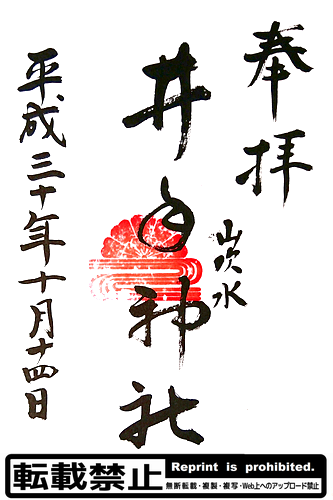 奉拝
山吹水
井手神社
平成三十年十月十四日
転載禁止
Reprint is prohibited.
無断転載・複製・複写・Web上へのアップロード禁止